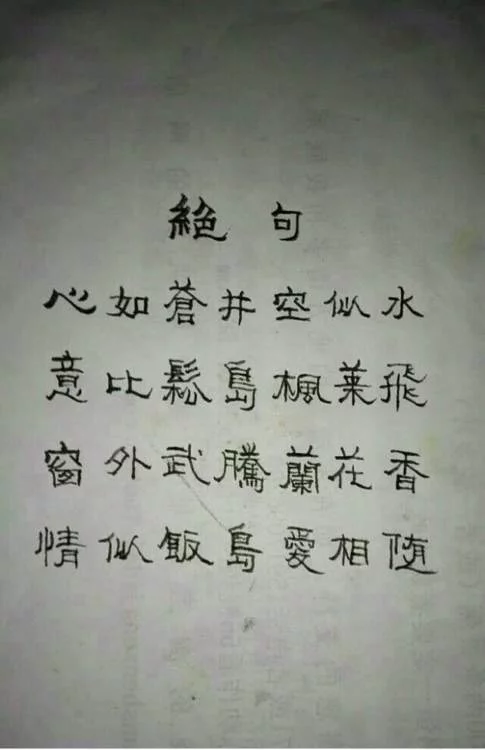 絕句
心如蒼井空似水
意比鬆島楓葉飛
窗外武騰蘭花香
情似飯島愛相随